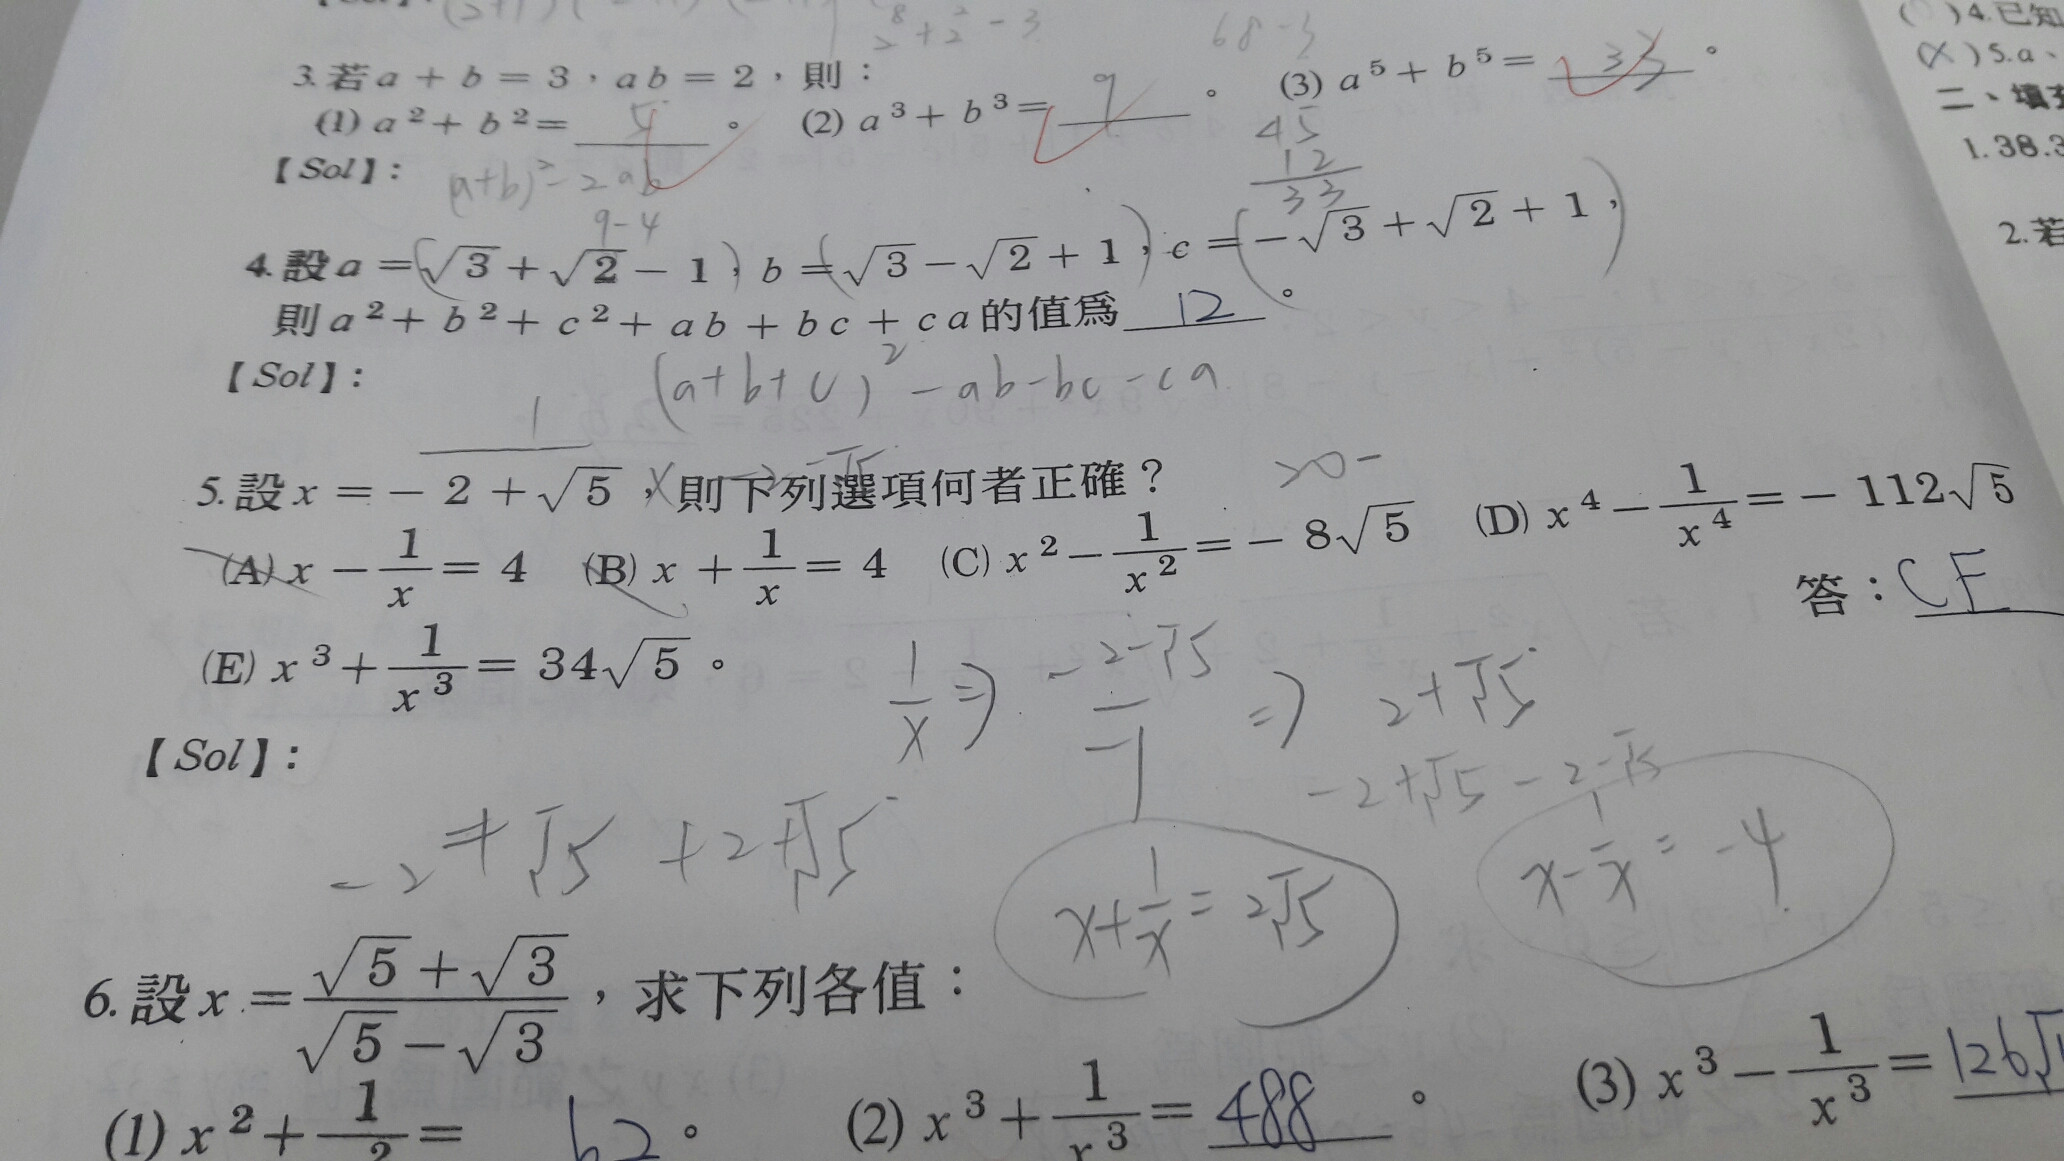 2⁸+2²-3
68-3
3.若a+b=3,ab=2,則:
(1)a²+b²=5。 (2)a³+b³=9。 (3)a⁵+b⁵=33。
【Sol】: (a+b)²-2ab
9-4
45
12
33
4.設a=(√3+√2-1),b=(√3-√2+1),c=(-√3+√2+1),
則a²+b²+c²+ab+bc+ca的值爲12。
【Sol】: (a+b+c)²-ab-bc-ca
5.設x=-2+√5,則下列選項何者正確?
(A)x-1/x=4 (B)x+1/x=4 (C)x²-1/x²=-8√5 (D)x⁴-1/x⁴=-112√5
(E)x³+1/x³=34√5。
答:CE
【Sol】:
1/x ⇒ -2-√5/-1 ⇒ 2+√5
-2+√5-2-√5
-2+√5+2+√5
x+1/x=2√5
x-1/x=-4
6.設x=(√5+√3)/(√5-√3),求下列各值:
(1)x²+1/x²=62。 (2)x³+1/x³=488。 (3)x³-1/x³=126√
( )4.已知
(X)5.a、
二、填充
1.38.3
2.若